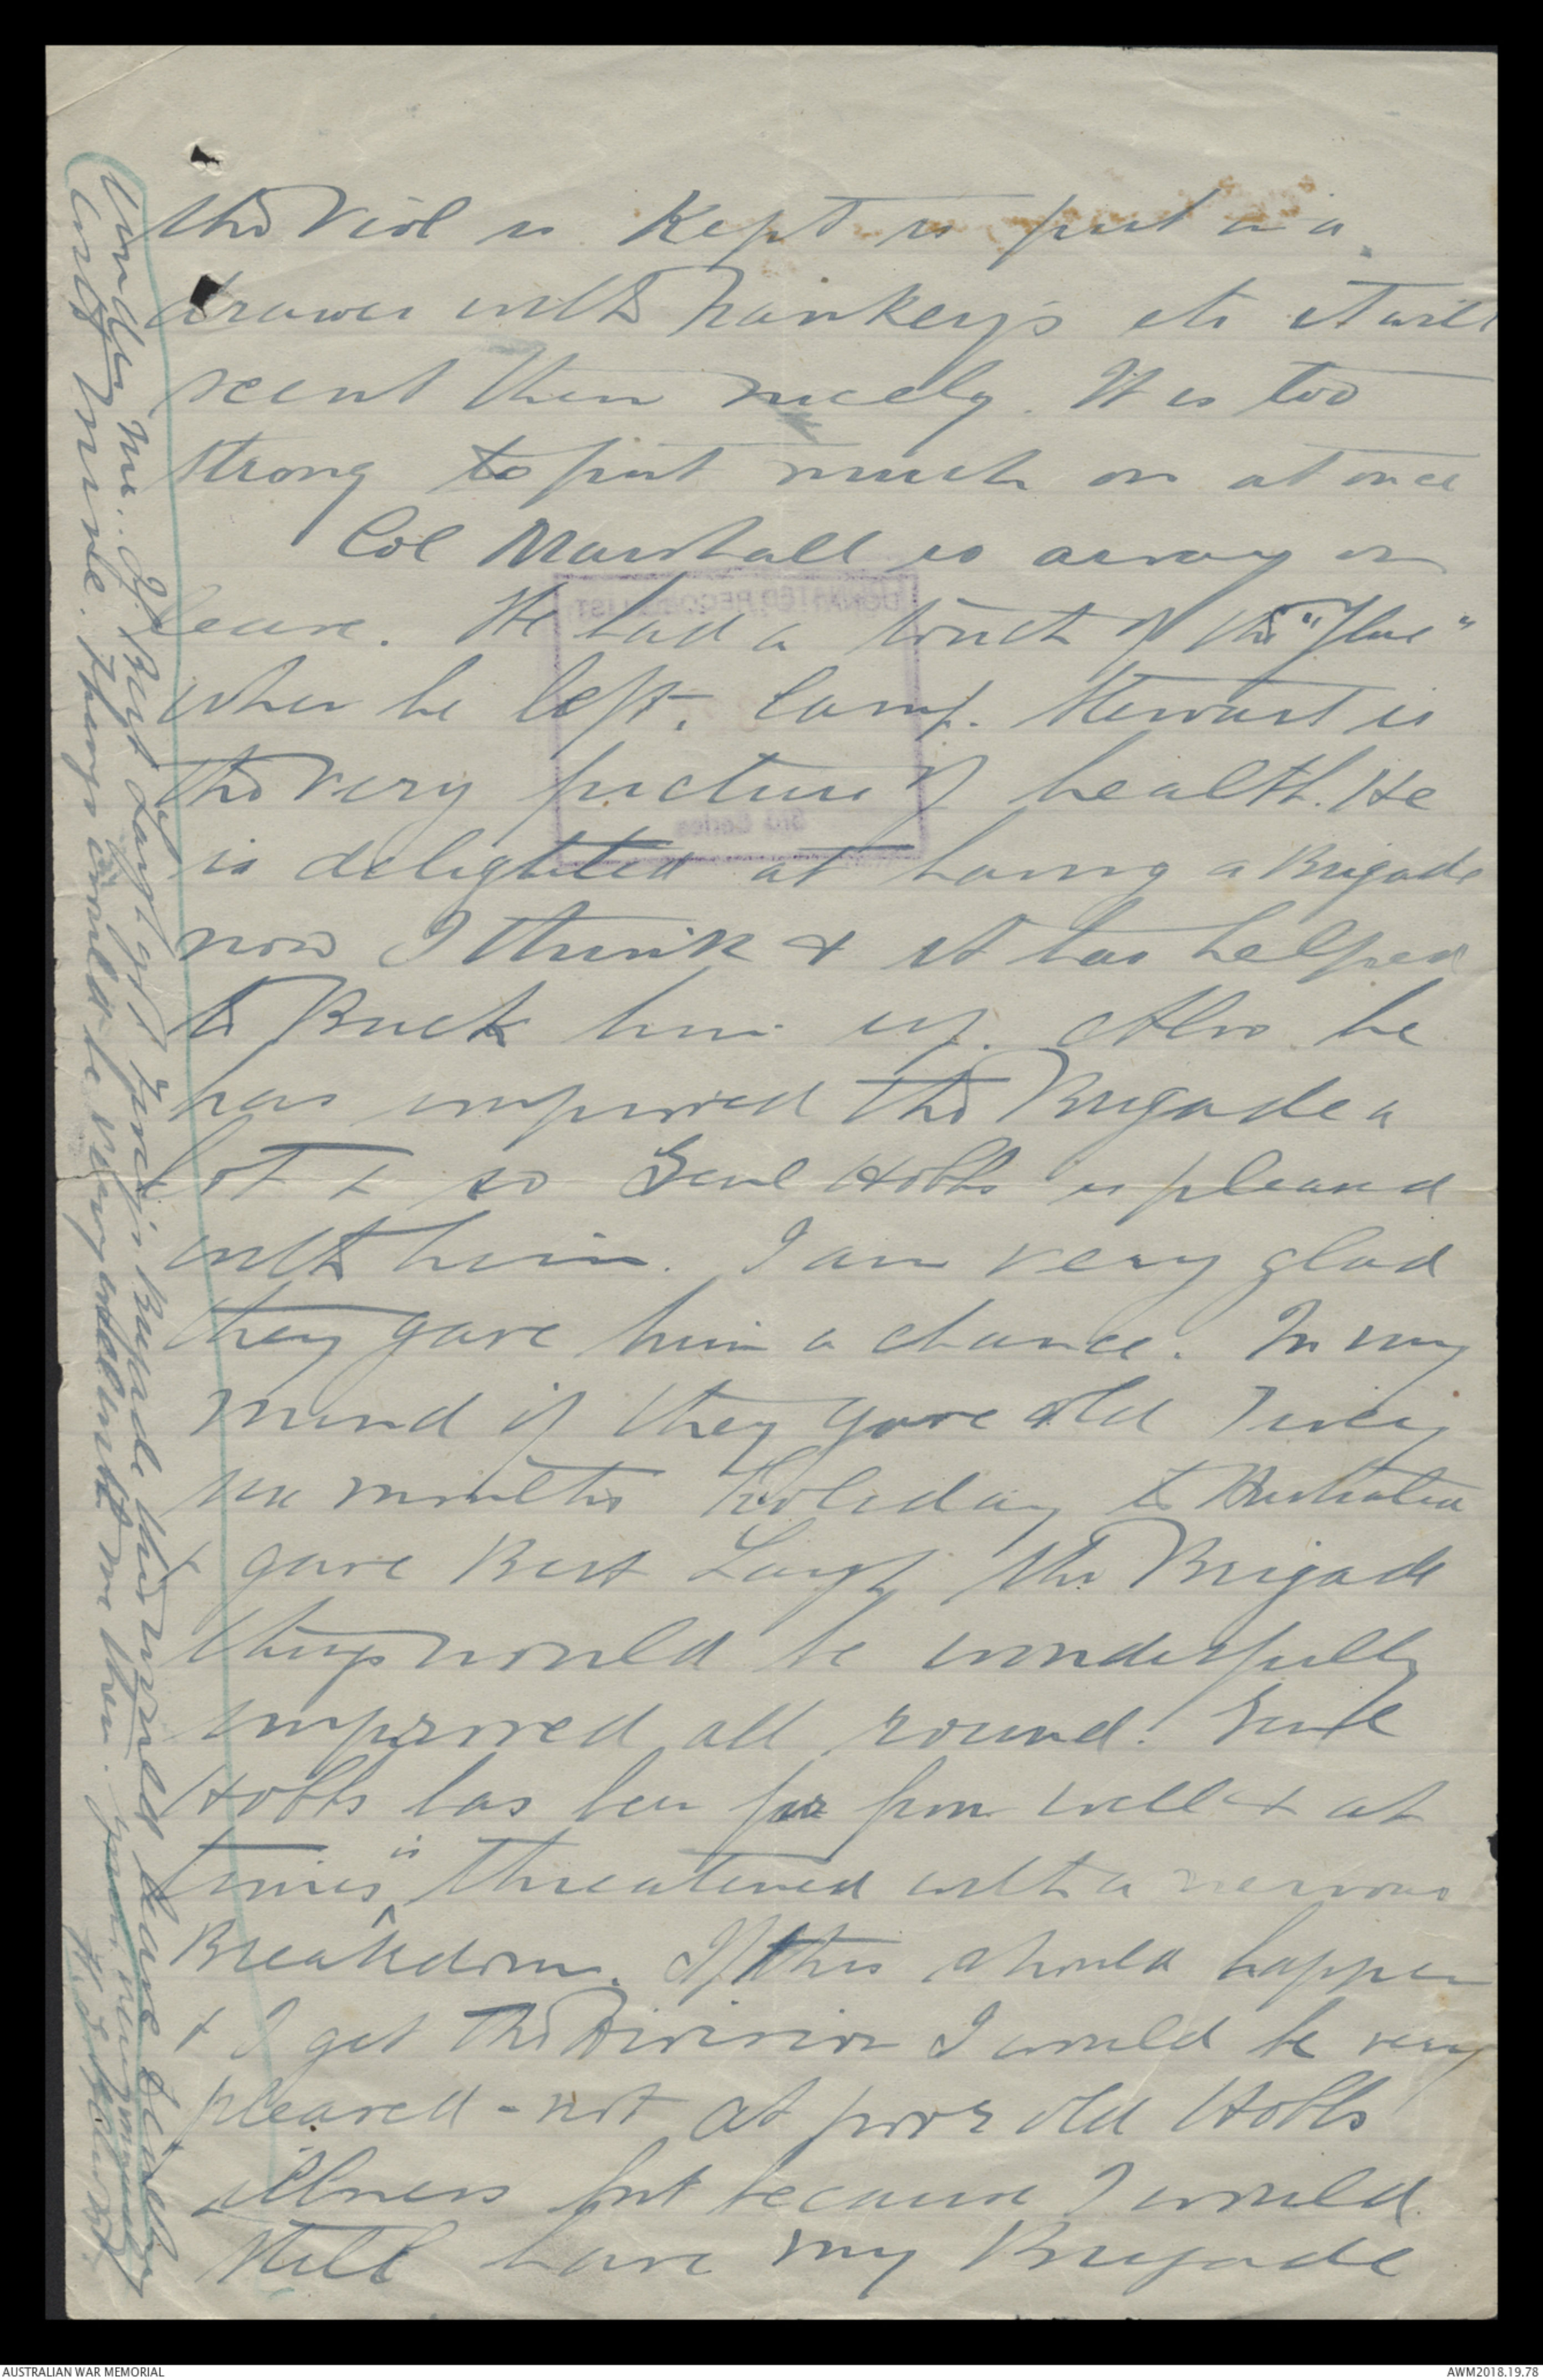 the viol is kept is put in a
drawer with hankeys etc it will
scent them nicely. It is too
strong to put much on at once
Col Marshall is away on
leave. He had a touch of the "Flue"
when he left. Camp. Stewart is
the very picture of health. He
is delighted at having a Brigade
now I think & it has helped
to Buck him up. Also he
has improved the Brigade a
lot & so Genl Hobbs is pleased
with him. I am very glad
they gave him a chance. In my
mind if they gave old Tivey
six months holiday to Australia
& gave Bert Layh the Brigade
things would be wonderfully
improved all round. Genl
Hobbs has been far from well & at
times is threatened with a nervous
Breakdown. If this should happen
& I get the Division I would be very
pleased - not at poor old Hobbs
illness but because I would
still have my Brigade
under me. If Bert Layh got Tivey's Brigade this would leave Scanlan
with mine. Things would be very well with me then.
H. E. Elliott
DONATED RECORDS LIST
3rd Series
AUSTRALIAN WAR MEMORIAL
AWM2018.19.78